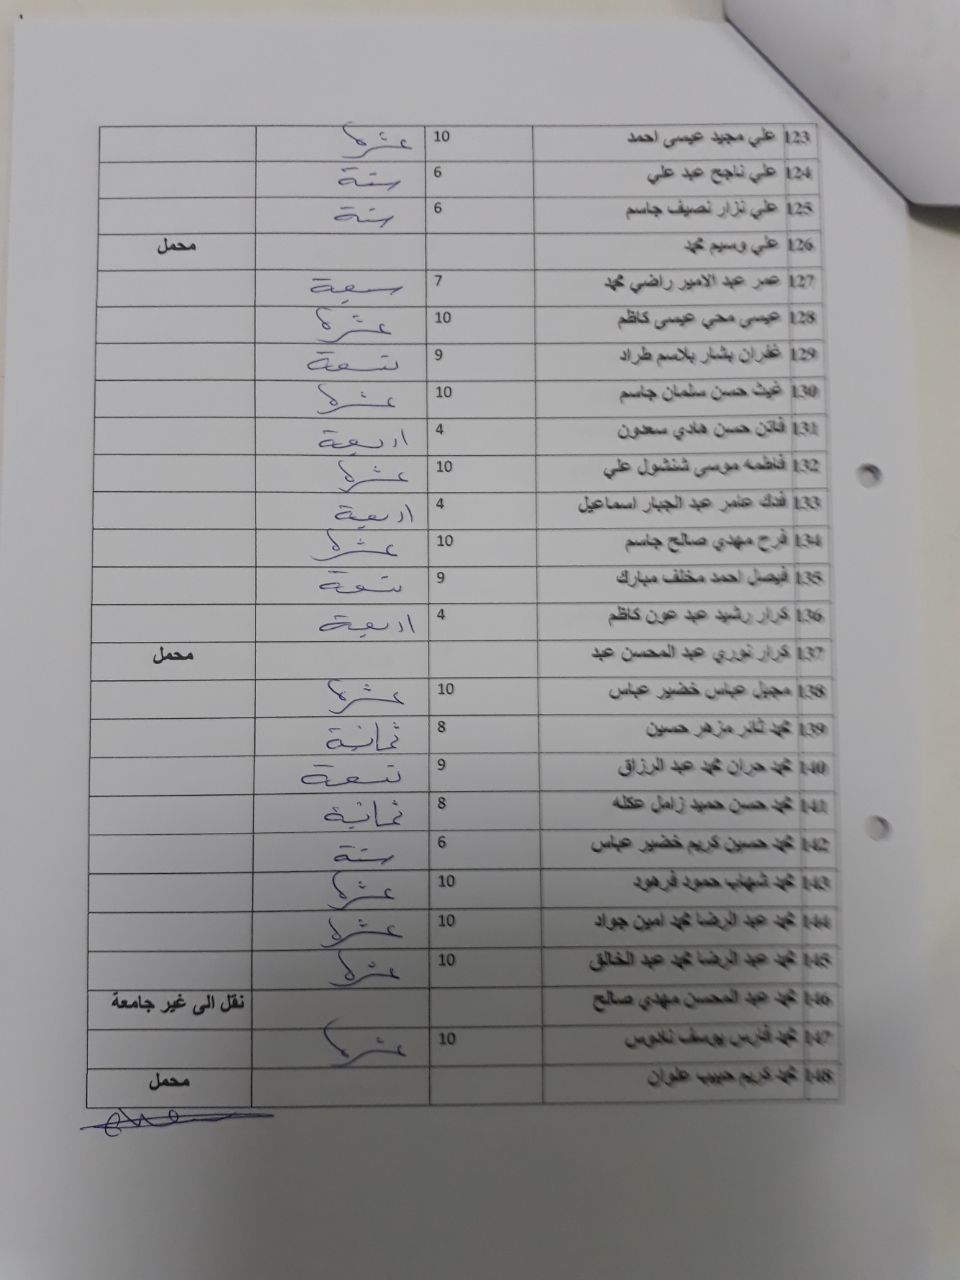 123 علي مجيد عيسى احمد 10 عشرة
124 علي ناجح عبد علي 6 ستة
125 علي نزار نصيف جاسم 6 ستة
126 علي وسيم محمد محمل
127 عمر عبد الامير راضي محمد 7 سبعة
128 عيسى محي عيسى كاظم 10 عشرة
129 غفران بشار بلاسم طراد 9 تسعة
130 غيث حسن سلمان جاسم 10 عشرة
131 فاتن حسن هادي سعدون 4 اربعة
132 فاطمه موسى شنشول علي 10 عشرة
133 فدك عامر عبد الجبار اسماعيل 4 اربعة
134 فرح مهدي صالح جاسم 10 عشرة
135 فيصل احمد مخلف مبارك 9 تسعة
136 كرار رشيد عبد عون كاظم 4 اربعة
137 كرار نوري عبد المحسن عبد محمل
138 مجبل عباس خضير عباس 10 عشرة
139 محمد ثائر مزهر حسين 8 ثمانية
140 محمد حران محمد عبد الرزاق 9 تسعة
141 محمد حسن حميد زامل عكله 8 ثمانية
142 محمد حسين كريم خضير عباس 6 ستة
143 محمد شهاب حمود فرهود 10 عشرة
144 محمد عبد الرضا محمد امين جواد 10 عشرة
145 محمد عبد الرضا محمد عبد الخالق 10 عشرة
146 محمد عبد المحسن مهدي صالح نقل الى غير جامعة
147 محمد فارس يوسف 10 عشرة
148 محمد كريم حبيب علوان محمل